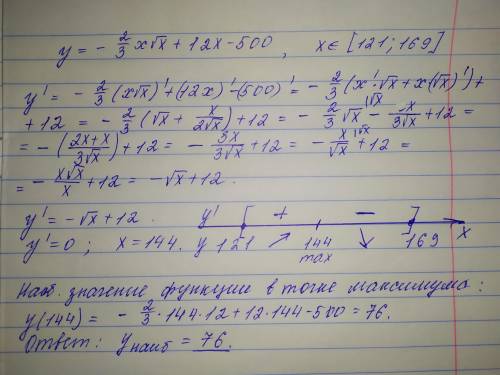 y = - 2/3 x√x + 12x - 500 , x ∈ [121; 169]
y' = - 2/3 (x√x)' + (12x)' - (500)' = - 2/3 (x'·√x + x(√x)') +
+ 12 = - 2/3 (√x + x/(2√x)) + 12 = - 2/3 √x |√x - x/(3√x) + 12 =
= - ((2x+x)/(3√x)) + 12 = - 3x/(3√x) + 12 = - x/√x |√x + 12 =
= - x√x/x + 12 = - √x + 12 .
y' = - √x + 12 . y' [ + - ]
y' = 0 ; x = 144. y 121 ↗ 144 ↘ 169 x
max
Наиб. значение функции в точке максимума :
y(144) = - 2/3 · 144 · 12 + 12 · 144 - 500 = 76.
Ответ : y наиб = 76 .